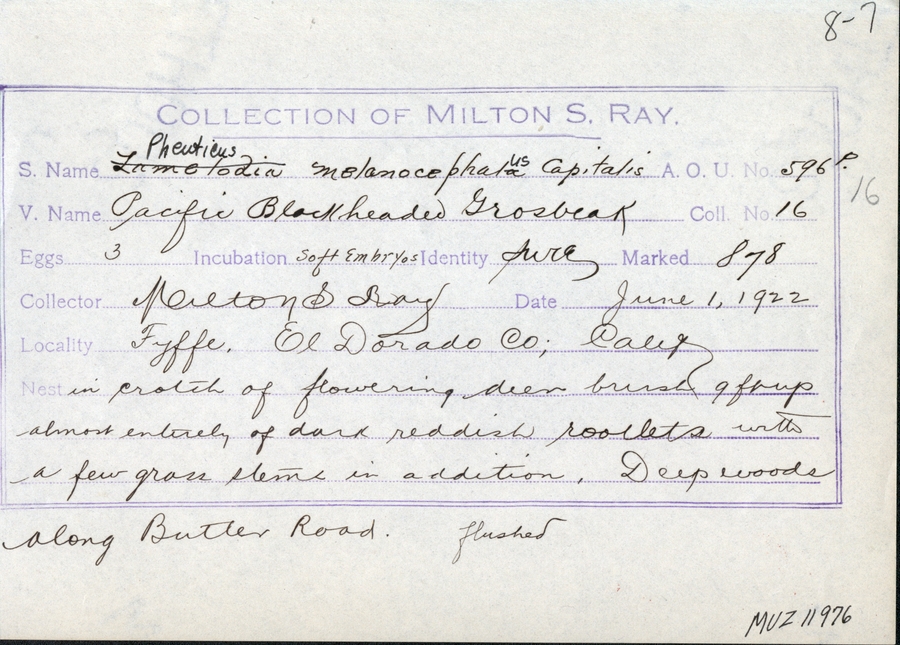 8-7
COLLECTION OF MILTON S. RAY.
Pheuticus
S. Name Zamelodia melanocephala us Capitalis A. O. U. No. 596 a.
16
V. Name Pacific Blackheaded Grosbeak Coll. No. 16
Eggs 3 Incubation soft Embryos Identity sure Marked 878
Collector Milton S Ray Date June 1, 1922
Locality Fyffe, El Dorado Co; Calif
Nest in crotch of flowering deer brush 9 ft up
almost entirely of dark reddish rootlets with
a few grass stems in addition. Deep woods
along Butler Road. flushed
MVZ 11976